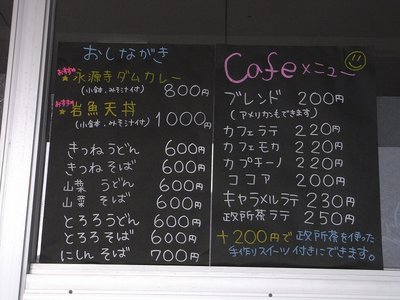 おしながき
おすすめ
★永源寺ダムカレー
(小鉢、みそ汁付) 800円
おすすめ
★岩魚天丼
(小鉢、みそ汁付) 1000円
きつねうどん 600円
きつねそば 600円
山菜 うどん 600円
山菜 そば 600円
とろろうどん 600円
とろろそば 600円
にしんそば 700円
Cafeメニュー
ブレンド 200円
(アメリカンもできます)
カフェラテ 220円
カフェモカ 220円
カプチーノ 220円
ココア 200円
キャラメルラテ 230円
政所茶ラテ 250円
+200円で 政所茶を使った
手作りスイーツ付きにできます。